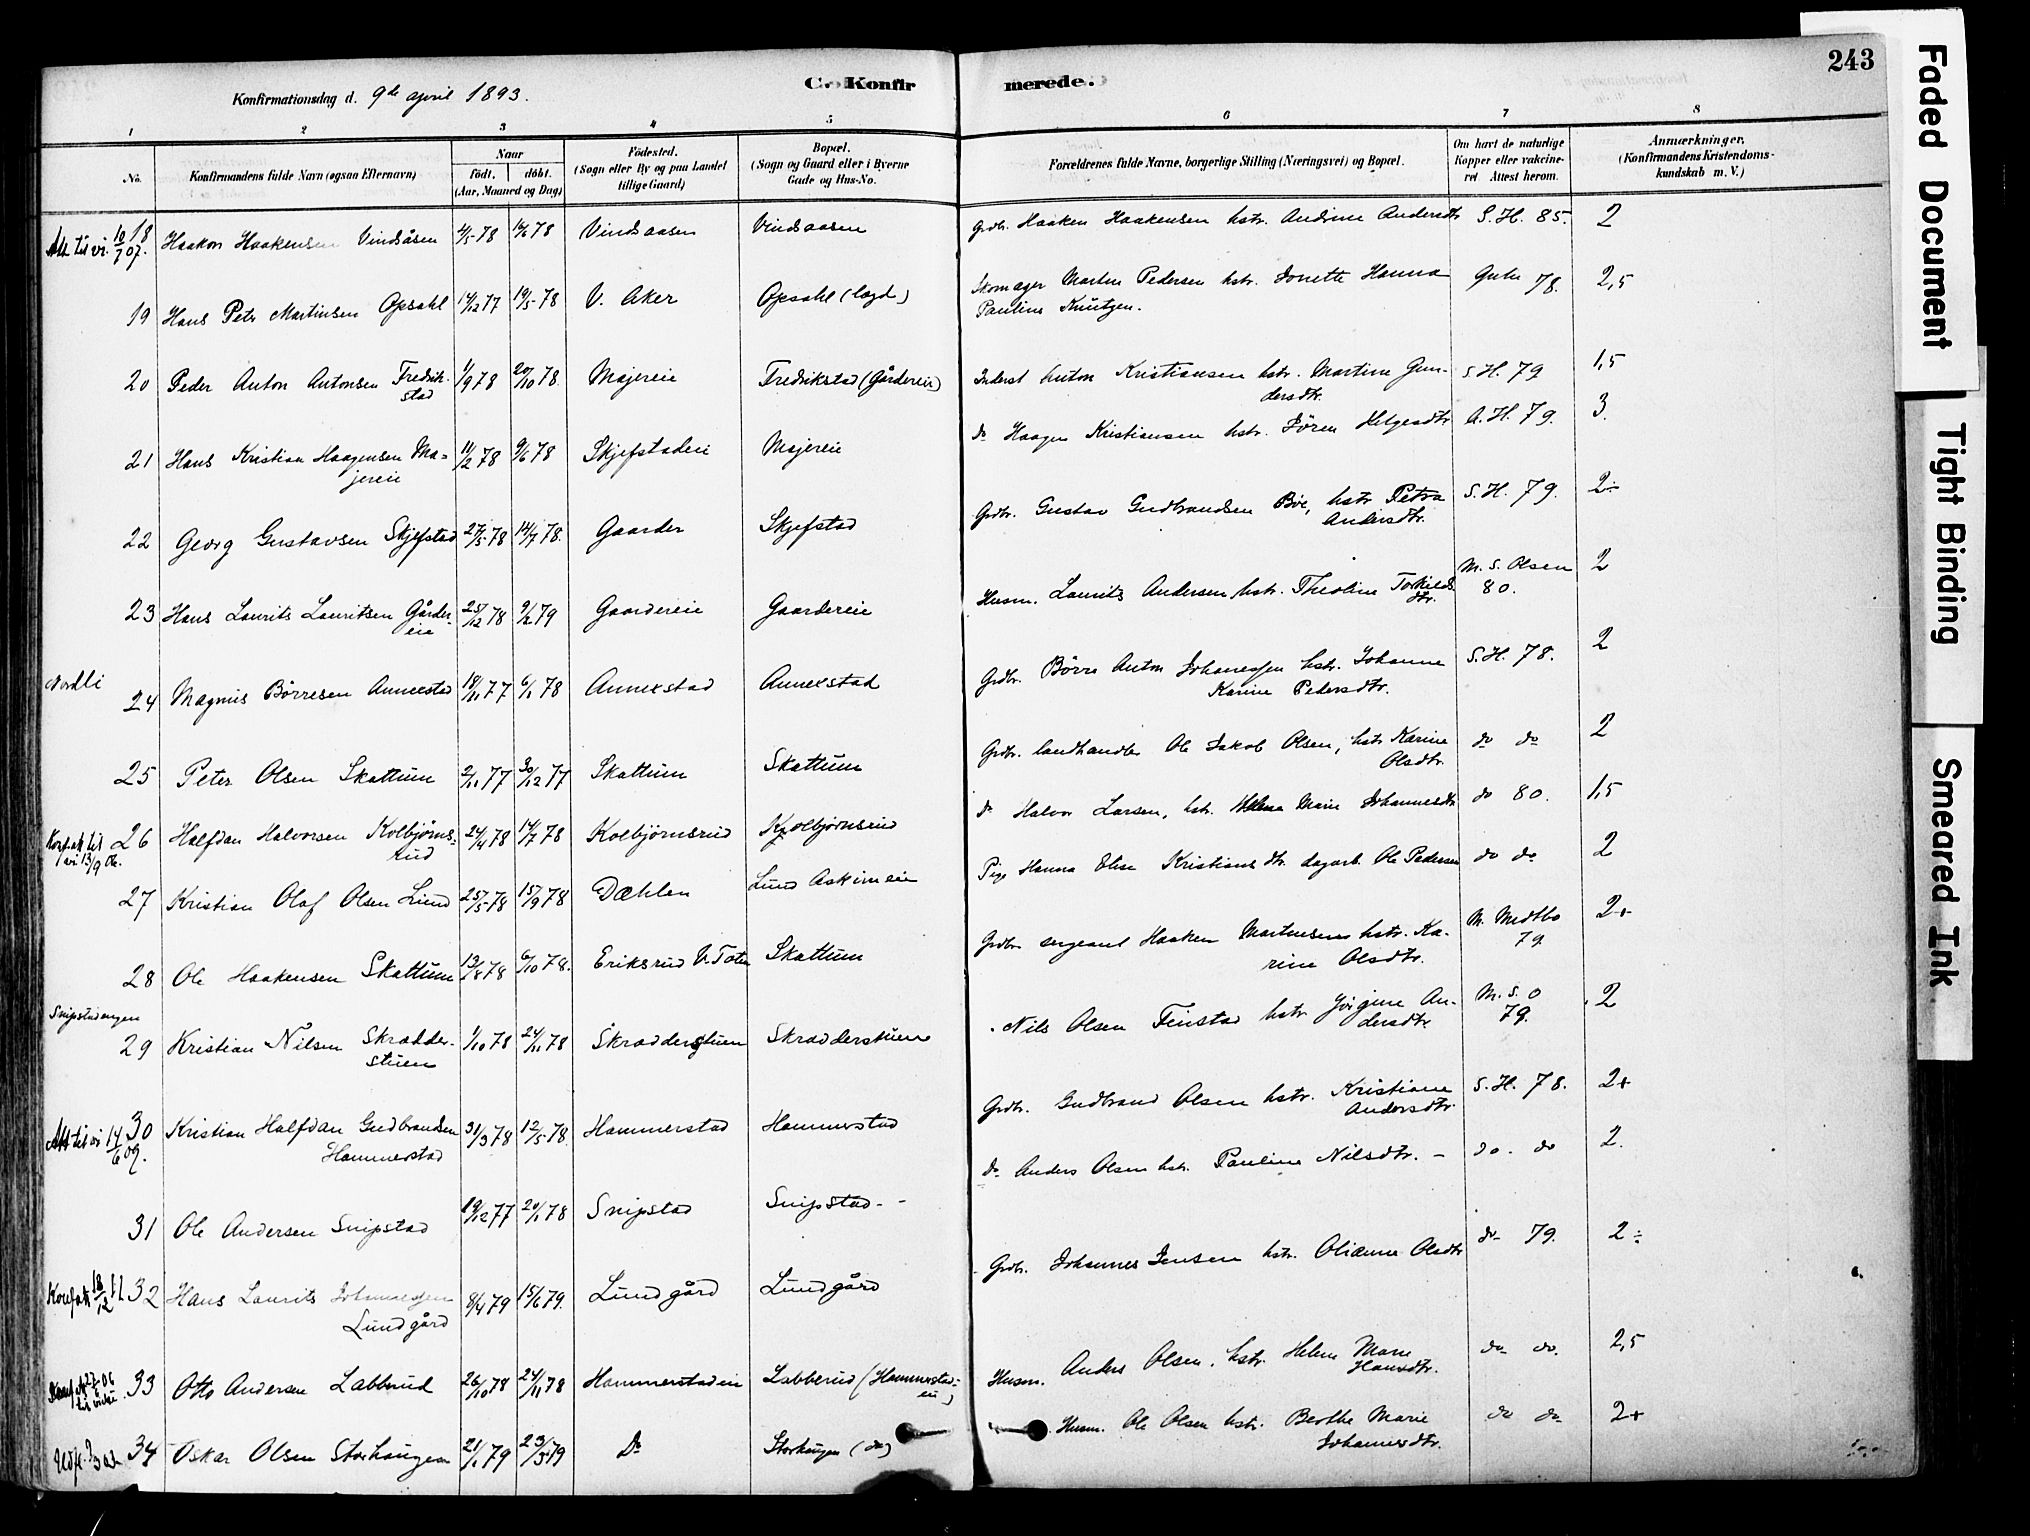 243
C. Konfirmerede.
Konfirmationsdag d. 9de april 1893.
1 2 3 4 5 6 7 8
No. Konfirmandens fulde Navn (ogsaa Efternavn) Naar født, døbt. (Aar, Maaned og Dag) Fødested. (Sogn eller By og paa Landet tillige Gaard) Bopæl. (Sogn og Gaard eller i Byerne Gade og Hus-No. Forældrenes fulde Navne, borgerlige Stilling (Næringsvei) og Bopæl. Om havt de naturlige Kopper eller vakcineret. Attest herom. Anmærkninger. (Konfirmandens Kristendomskundskab m. V.)
Att til vi. 10/7 07. 18 Haakon Haakensen Vindsåsen 4/5 78 16/6 78 Vindsaasen Vindsaasen Grdbr. Haaken Haakensen hstr. Andrine Andersdtr S.H. 85. 2
19 Hans Petr Martinsen Opsahl 14/12 77 19/5 78 V. Aker Opsahl (lægd) Skomager Martin Pedersen hstr. Jonette Hanna Gute 78. 2,5
Pauline Knutzen.
20 Peder Anton Antonsen Fredrik- 1/9 78 20/10 78. Majereie Fredrikstad (Gårdereie) Inderst Anton Kristiansen hstr. Martine Gun- S.H. 79 1,5
stad dersdtr.
21 Hans Kristian Haagensen Ma- 11/2 78 9/6 78 Skjefstadeie Majereie do Haagen Kristiansen hstr. Søren Helgesdtr A.H. 79. 3.
jereie
22 Georg Gustavsen Skjefstad 27/5 78 14/7 78. Gaarder Skjefstad Grdbr. Gustav Gudbrandsen Bøe, hstr Petra S.H. 79. 2÷
Andersdtr.
23 Hans Laurits Lauritsen Gårder- 25/12 78 9/2 79 Gaardereie Gaardereie Husm. Laurits Andersen hstr. Theoline Torkilds- M.S. Olsen 2
eie dtr. 80.
Nordli
24 Magnus Børresen Annexstad 18/11 77 6/1 78 Annexstad Annexstad Grdbr. Børre Anton Johanessen hstr. Johanne S.H. 78. 2
Karine Pedersdtr.
25 Peter Olsen Skattum 2/11 77 30/12 77 Skattum Skattum Grdbr. landhandler Ole Jakob Olsen, hstr Karine do do 2
Olsdtr.
Konf. att til vi 13/9 06. 26 Halfdan Halvorsen Kolbjørns- 24/4 78 14/7 78 Kolbjörnsrud Kolbjørnsrud do Halvor Larsen, hstr. Helena Marie Johannesdtr do 80. 1,5
rud
27 Kristian Olaf Olsen Lund 25/5 78 15/9 78 Dæhlen Lund Askimeie Pige Hanna Elise Kristiansdtr. dagarb. Ole Pedersen do do 2
28 Ole Haakensen Skattum 13/8 78 6/10 78. Eriksrud V. Toten Skattum Grdbr sergeant Haaken Martinsen hstr. Ka- M. Medtbo 2+
rine Olsdtr. 79.
Snipstadengen
29 Kristian Nilsen Skrædder- 1/10 78 24/11 78 Skrædderstuen Skrædderstuen Nils Olsen Finstad hstr Jörgine An- M.S.O 2
stuen dersdtr 79.
Att til vi 14/6 09. 30 Kristian Halfdan Gudbrandsen 31/3 78 12/5 78. Hammerstad Hammerstad Grdbr. Gudbrand Olsen hstr. Kristiane S.H. 78. 2+
Hammerstad Andersdtr.
31 Ole Andersen Snipstad 19/12 77 20/1 78 Snipstad Snipstad- do Anders Olsen hstr. Pauline Nilsdtr. - do. do 2.
Konf. att 18/12 11 32 Hans Laurits Johannessen 8/4 79 15/6 79. Lundgård Lundgård Grdbr. Johannes Jensen hstr. Olianne Olsdtr do 79. 2÷
Lundgård
33 Otto Andersen Labbrud 26/10 78 24/11 78 Hammerstadeie Labberud (Hammerstad- Husm. Anders Olsen, hstr. Helene Marie do do. 2,5
eie) Hansdtr.
34 Oskar Olsen Storhaugen 21/1 79 23/3 79 Do Storhaugen (do) Husm. Ole Olsen hstr. Berthe Marie do do 2+
Johannesdtr.
Faded Document
Tight Binding
Smeared Ink